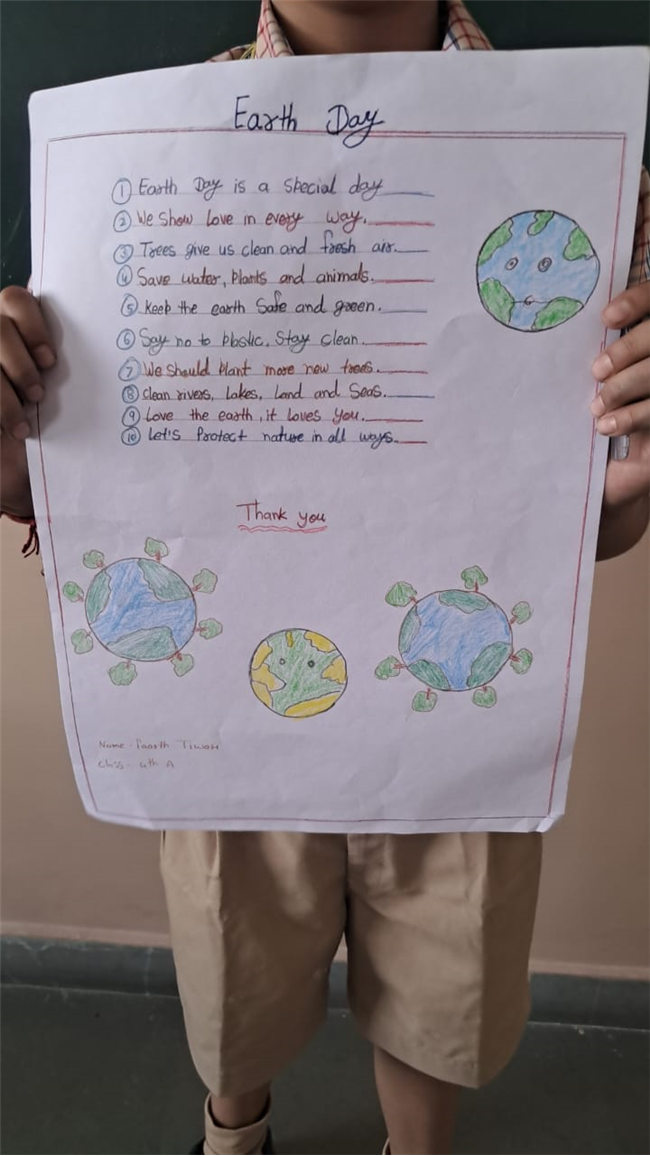 Earth Day
① Earth Day is a special day
② We show Love in every way.
③ Trees give us clean and fresh air.
④ Save water, plants and animals.
⑤ Keep the earth Safe and green.
⑥ Say no to plastic. Stay clean.
⑦ We should plant more new trees.
⑧ clean rivers, Lakes, Land and Seas.
⑨ Love the earth, it Loves you.
⑩ Let's Protect nature in all ways.
Thank you
Name - Paarth Tiwari
Class - 4th A